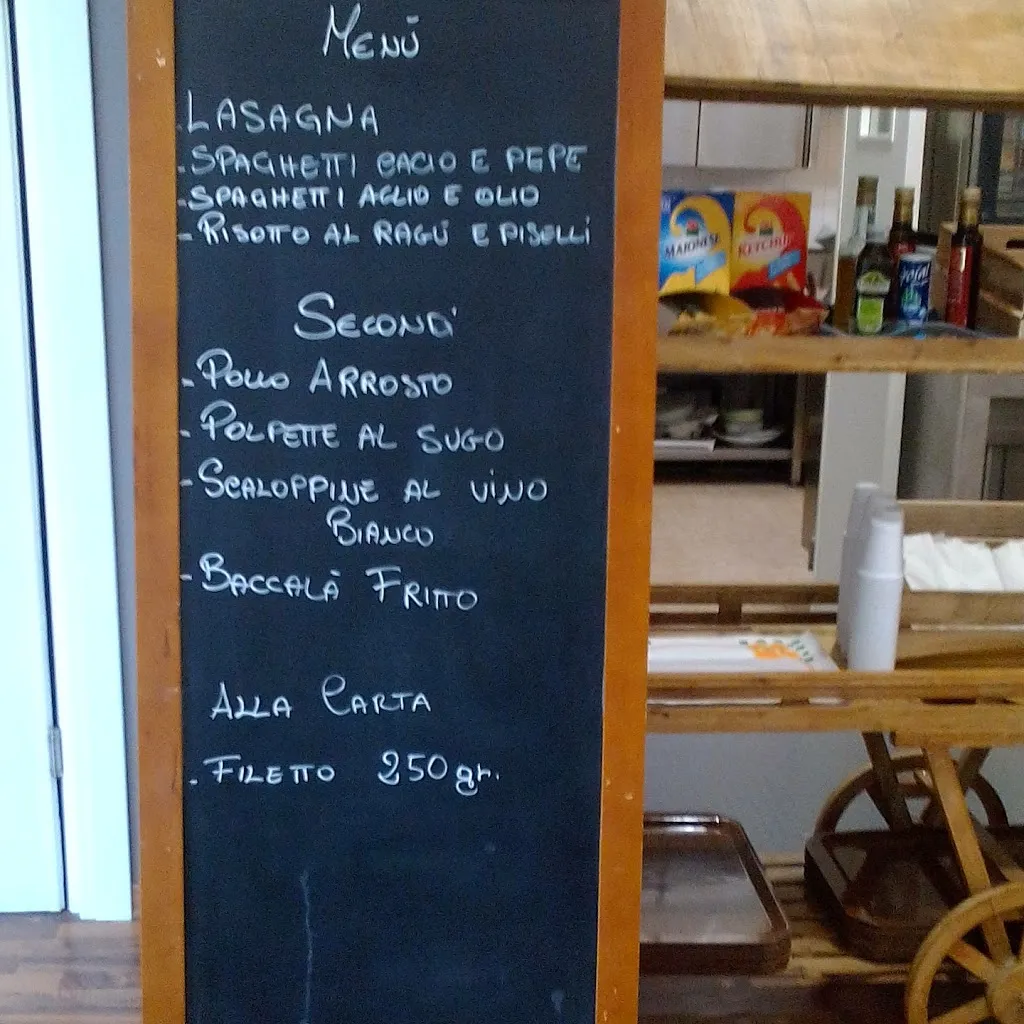 Menù
LASAGNA
- SPAGHETTI CACIO E PEPE
- SPAGHETTI AGLIO E OLIO
- RISOTTO AL RAGÙ E PISELLI
SECONDI
- POLLO ARROSTO
- POLPETTE AL SUGO
- SCALOPPINE AL VINO
BIANCO
- BACCALÀ FRITTO
ALLA CARTA
- FILETTO 250 gr.
MAIONESE
KETCHUP